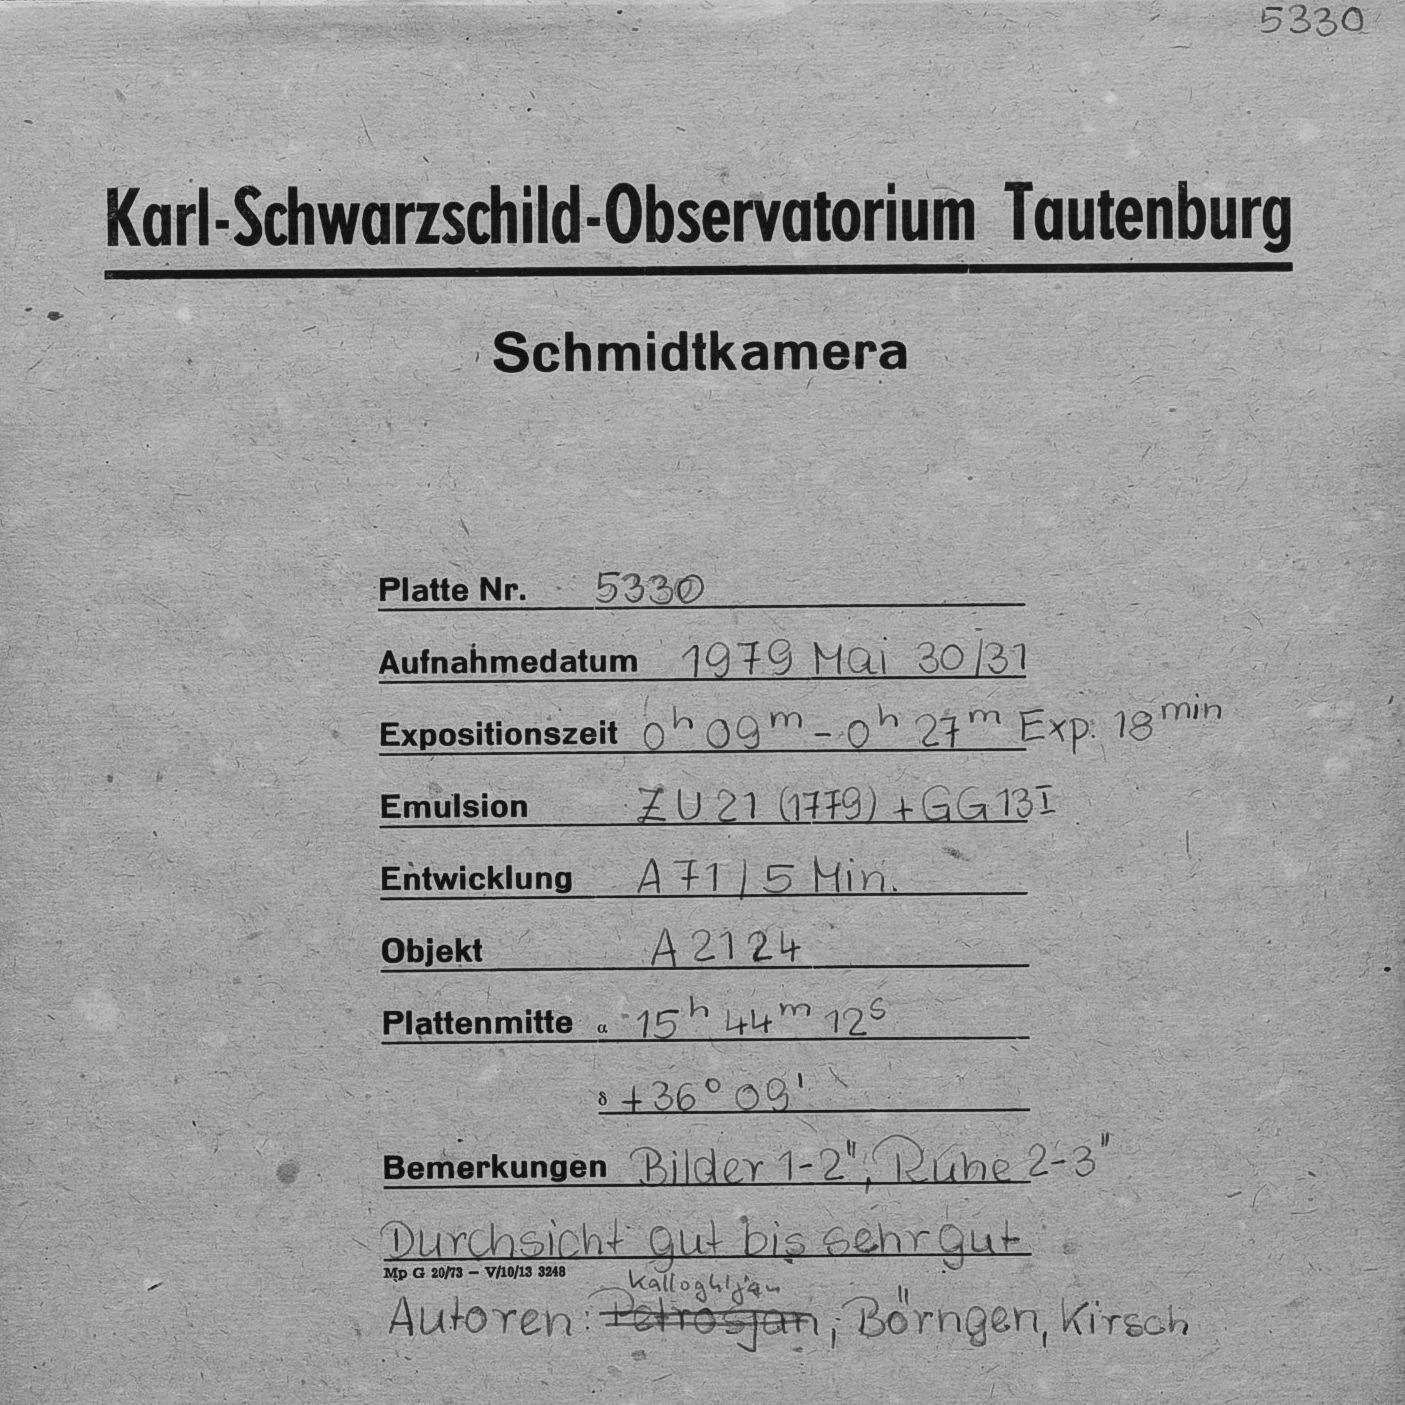 5330
Karl-Schwarzschild-Observatorium Tautenburg
Schmidtkamera
Platte Nr. 5330
Aufnahmedatum 1979 Mai 30/31
Expositionszeit 0h 09m - 0h 27m Exp. 18min
Emulsion ZU21 (1779) + GG13I
Entwicklung A71/5 Min.
Objekt A2124
Plattenmitte α 15h 44m 12s
δ +36° 09'
Bemerkungen Bilder 1-2", Ruhe 2-3"
Durchsicht gut bis sehr gut
Mp G 20/73 – V/10/13 3248
Kalloghljan
Autoren: Petrosjan, Börngen, Kirsch